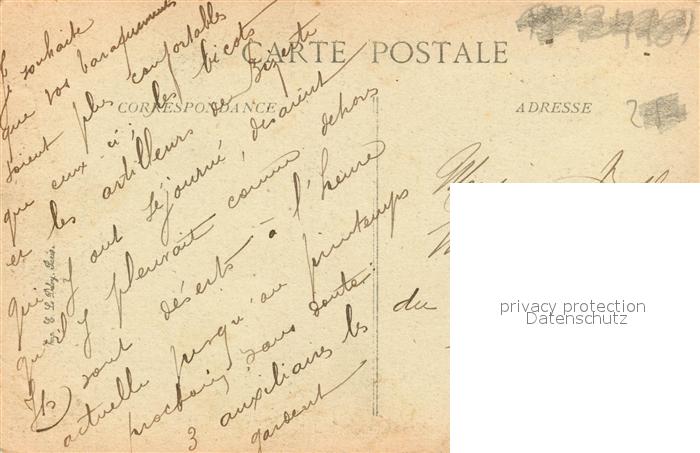 CARTE POSTALE
CORRESPONDANCE
ADRESSE
Je souhaite
que vos baraquements
soient plus confortables
que ceux-ci: les bicots
et les artilleurs de Bizerte
qui y ont séjourné, disaient
qu'il y pleuvait comme dehors
Ils sont déserts à l'heure
actuelle jusqu'au printemps
prochain, sans doute:
3 auxiliaires les
gardent
du
privacy protection
Datenschutz